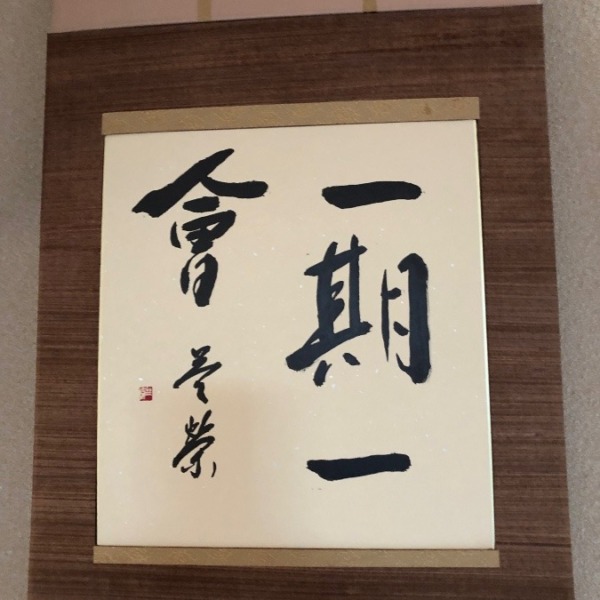 一期一
會